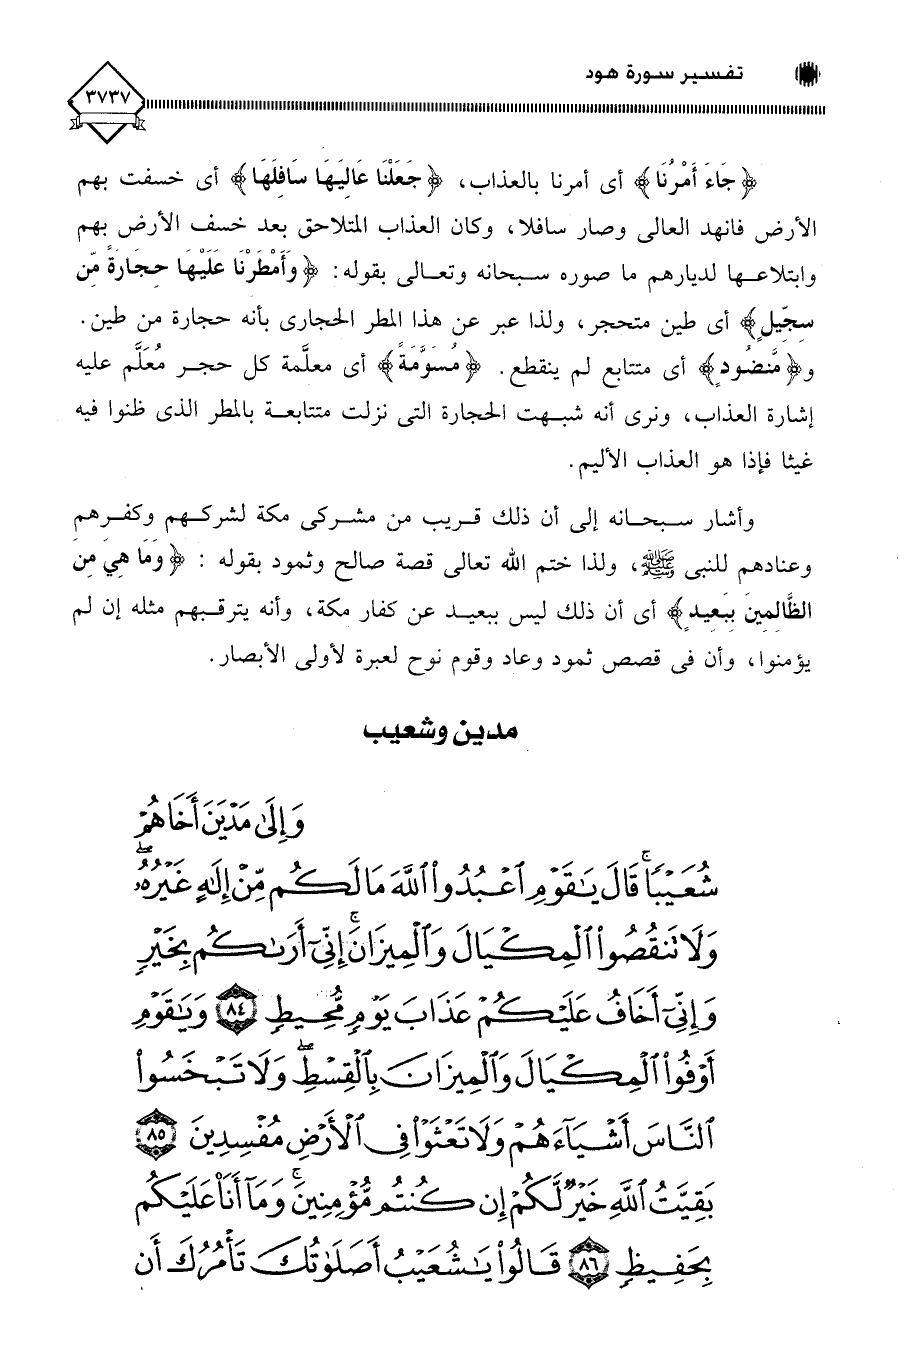 تفسير سورة هود
٣٧٣٧
﴿جَاءَ أَمْرُنَا﴾ أى أمرنا بالعذاب، ﴿جَعَلْنَا عَالِيَهَا سَافِلَهَا﴾ أى خسفت بهم
الأرض فانهد العالى وصار سافلا، وكان العذاب المتلاحق بعد خسف الأرض بهم
وابتلاعها لديارهم ما صوره سبحانه وتعالى بقوله: ﴿وَأَمْطَرْنَا عَلَيْهَا حِجَارَةً مِّن
سِجِّيلٍ﴾ أى طين متحجر، ولذا عبر عن هذا المطر الحجارى بأنه حجارة من طين.
و﴿مَّنضُودٍ﴾ أى متتابع لم ينقطع. ﴿مُسَوَّمَةً﴾ أى معلَّمة كل حجر مُعَلَّم عليه
إشارة العذاب، ونرى أنه شبهت الحجارة التى نزلت متتابعة بالمطر الذى ظنوا فيه
غيثا فإذا هو العذاب الأليم.
وأشار سبحانه إلى أن ذلك قريب من مشركى مكة لشركهم وكفرهم
وعنادهم للنبى ﷺ، ولذا ختم الله تعالى قصة صالح وثمود بقوله : ﴿وَمَا هِيَ مِنَ
الظَّالِمِينَ بِبَعِيدٍ﴾ أى أن ذلك ليس ببعيد عن كفار مكة، وأنه يترقبهم مثله إن لم
يؤمنوا، وأن فى قصص ثمود وعاد وقوم نوح لعبرة لأولى الأبصار.
مدين وشعيب
وَإِلَىٰ مَدْيَنَ أَخَاهُمْ
شُعَيْبًا ۚ قَالَ يَٰقَوْمِ ٱعْبُدُوا۟ ٱللَّهَ مَا لَكُم مِّنْ إِلَٰهٍ غَيْرُهُۥ ۖ
وَلَا تَنقُصُوا۟ ٱلْمِكْيَالَ وَٱلْمِيزَانَ ۚ إِنِّىٓ أَرَىٰكُم بِخَيْرٍ
وَإِنِّىٓ أَخَافُ عَلَيْكُمْ عَذَابَ يَوْمٍ مُّحِيطٍ ٨٤ وَيَٰقَوْمِ
أَوْفُوا۟ ٱلْمِكْيَالَ وَٱلْمِيزَانَ بِٱلْقِسْطِ ۖ وَلَا تَبْخَسُوا۟
ٱلنَّاسَ أَشْيَآءَهُمْ وَلَا تَعْثَوْا۟ فِى ٱلْأَرْضِ مُفْسِدِينَ ٨٥
بَقِيَّتُ ٱللَّهِ خَيْرٌ لَّكُمْ إِن كُنتُم مُّؤْمِنِينَ ۚ وَمَآ أَنَا۠ عَلَيْكُم
بِحَفِيظٍ ٨٦ قَالُوا۟ يَٰشُعَيْبُ أَصَلَوٰتُكَ تَأْمُرُكَ أَن